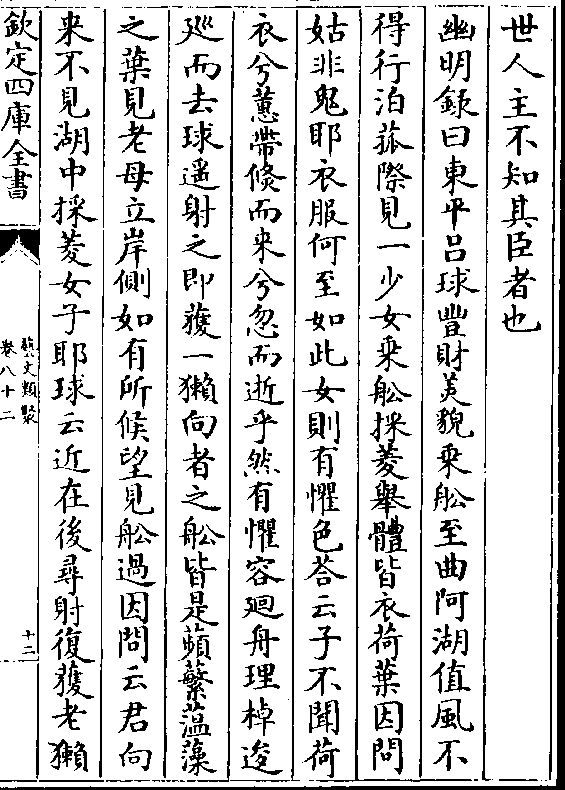 世人主不知其臣者也
幽明録曰東平吕球豐財美貌乗舩至曲阿湖值風不
得行泊菰際見一少女乗舩採菱舉體皆衣荷葉因問
姑非鬼耶衣服何至如此女則有懼色荅云子不聞荷
衣兮蕙帶倐而来兮忽而逝乎然有懼容廻舟理棹逡
廵而去球遥射之即獲一獺向者之舩皆是蘋蘩藴藻
之葉見老母立岸側如有所候望見舩過因問云君向
来不見湖中採菱女子耶球云近在後尋射復獲老獺
欽定四庫全書
藝文類聚
卷八十二
十二